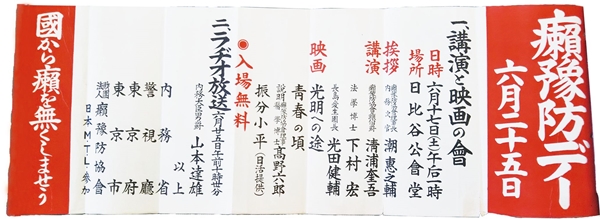 癩豫防デー
六月二十五日
一、講演と映画の會
日時 六月十七日(土)午后一時
場所 日比谷公會堂
挨拶 内務次官 潮惠之輔
講演 清浦奎吾
法學博士 下村宏
長島愛生園長 光田健輔
映画 光明への途
青春の頃
説明 高野六郎
振分小平(日活提供)
◉入場無料
二、ラヂオ放送
内務大臣男爵 山本達雄
以上
内務省
警視廳
東京府
東京市
財團法人 癩豫防協會
日本MTL参加
國から癩を無くしませう